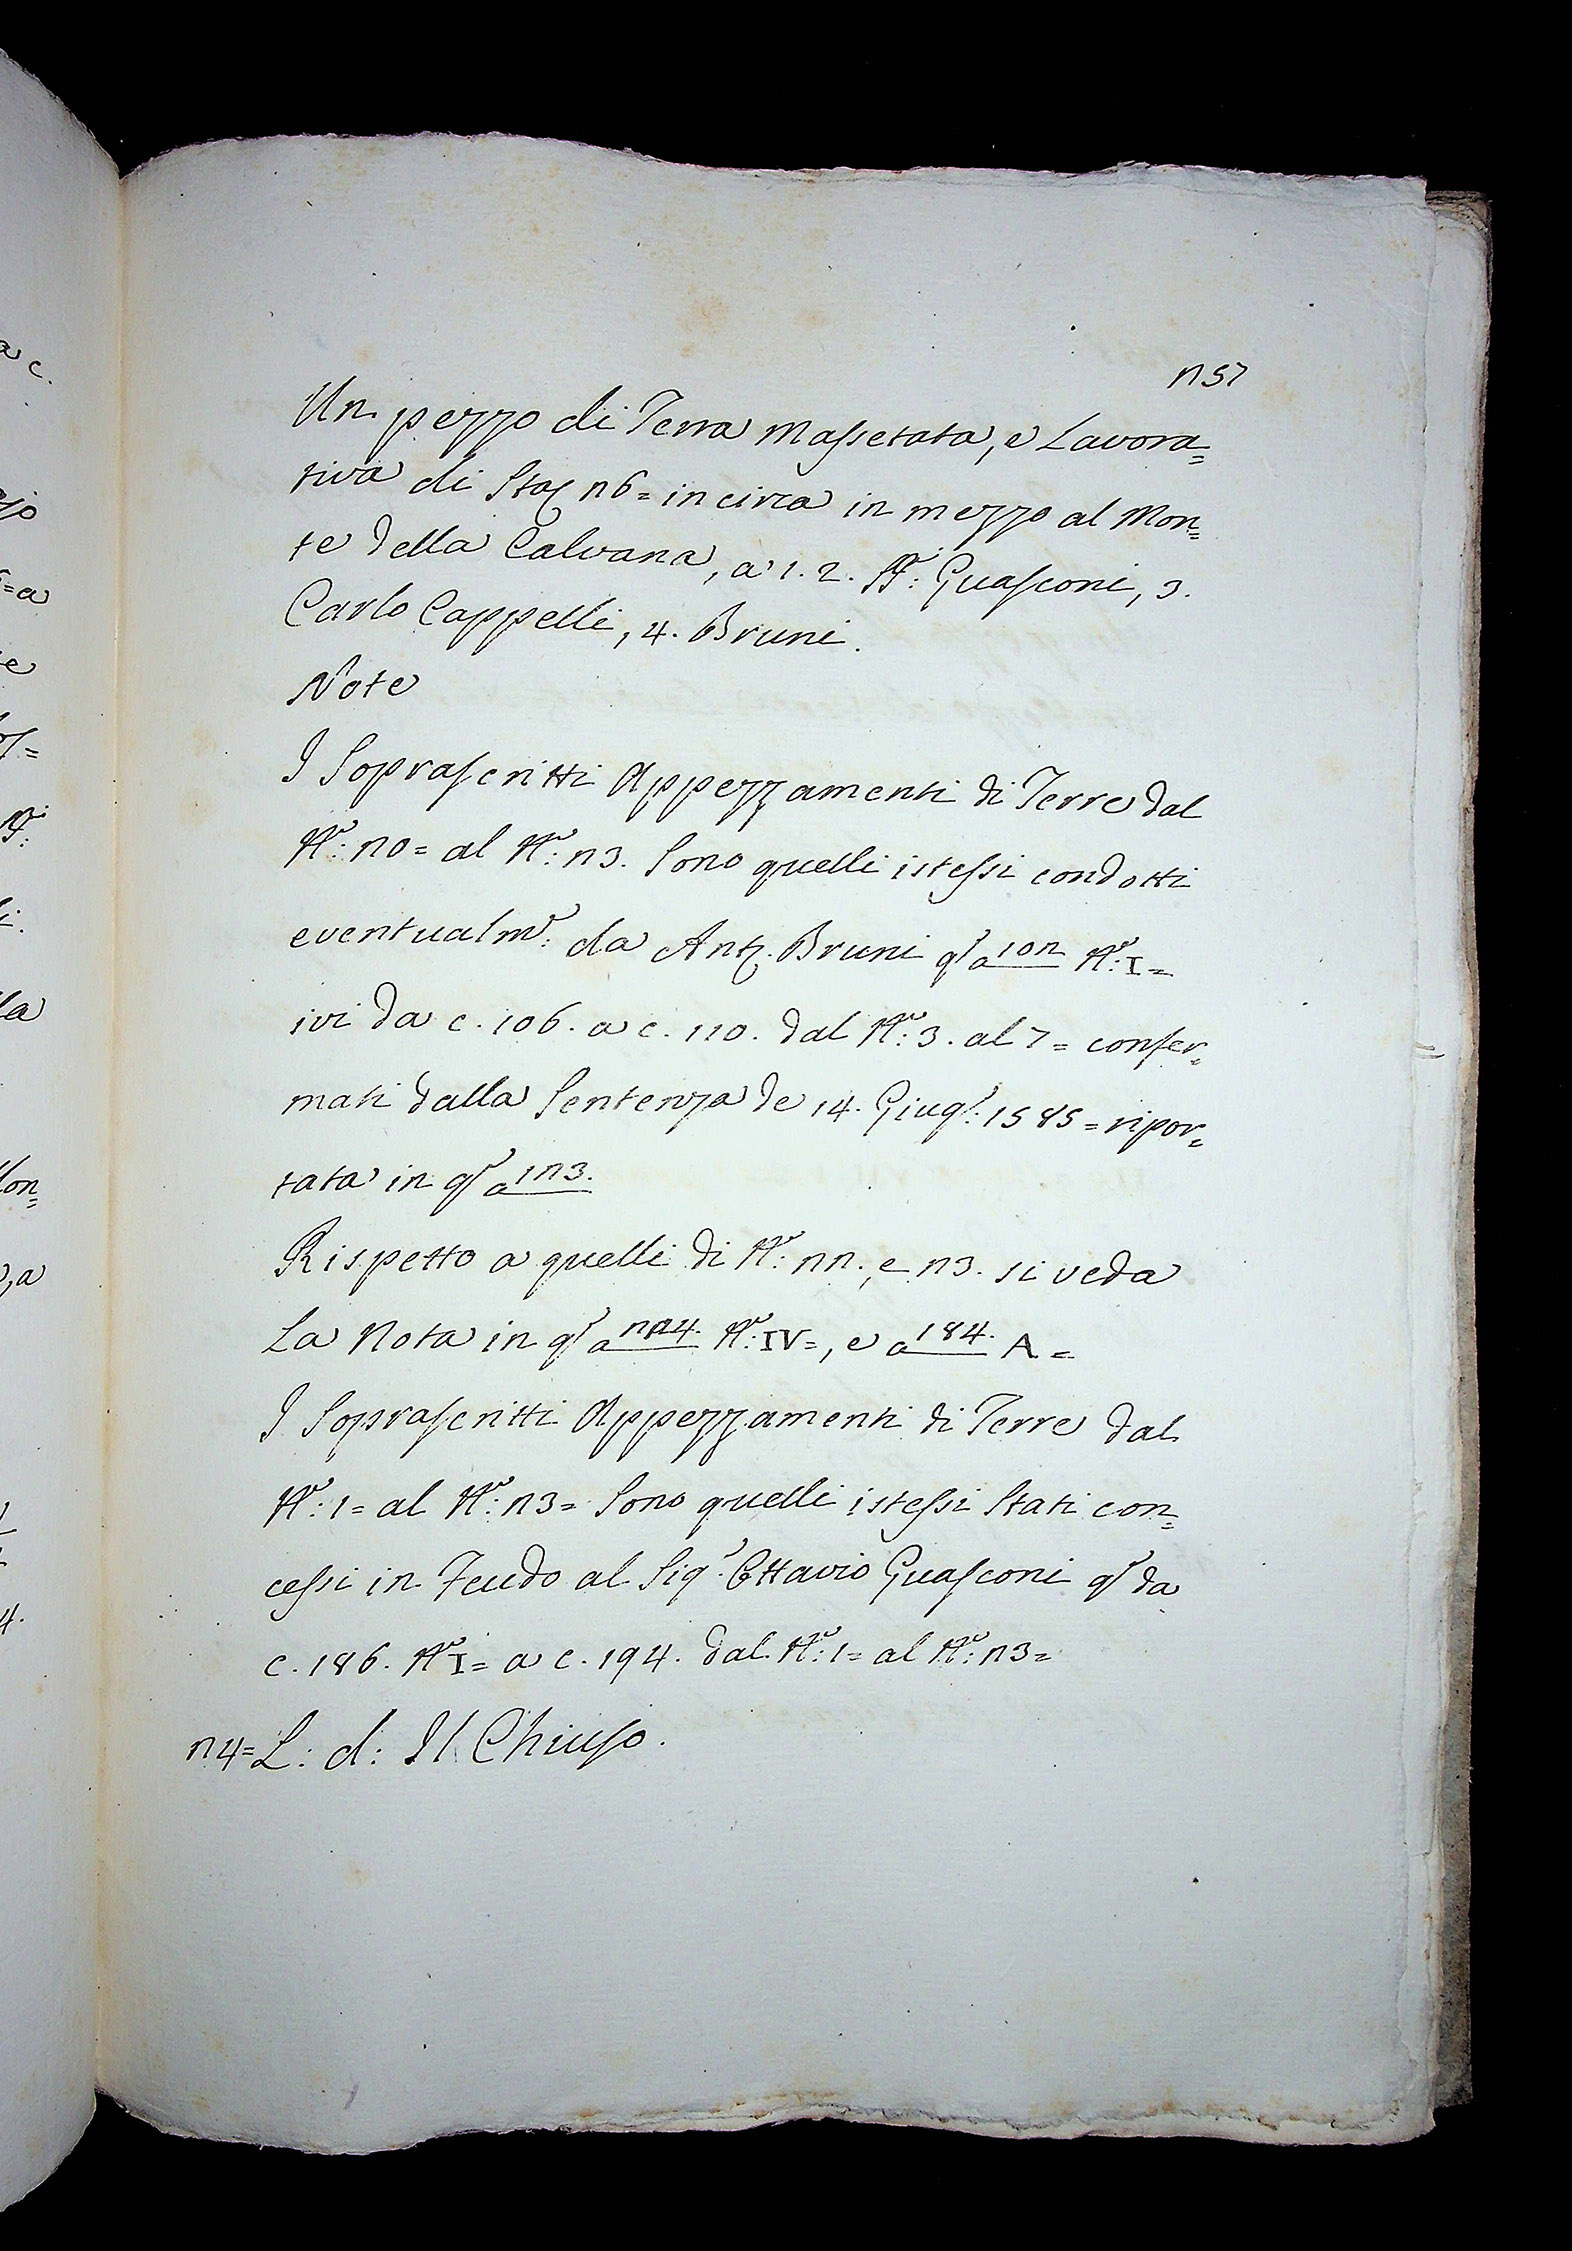 257
Un pezzo di Terra Massetata, e Lavora=
tiva di Sta 26= in circa in mezzo al Mon=
te della Calvana, a 1. 2. Nri: Guasconi, 3.
Carlo Cappelli, 4. Bruni.
Note
I Soprascritti Appezzamenti di Terre dal
No: 20= al No: 23. Sono quelli istessi condotti
eventualme: da Anto. Bruni qo a 102 No: I=
ivi da c. 106. a c. 110. dal No: 3. al 7= confer=
mati dalla Sentenza de 14. Giugo: 1585= ripor=
tata in qo a 123.
Rispetto a quelli di No: 22., e 23. si veda
La Nota in qo a 224. No: IV=, e a 184. A=
I Soprascritti Appezzamenti di Terre dal
No: 1= al No: 23= Sono quelli istessi Stati con=
cessi in Feudo al Sigr. Ottavio Guasconi qo da
c. 186. No I= a c. 194. dal No: 1= al No: 23=
24= L: d: Il Chiuso.